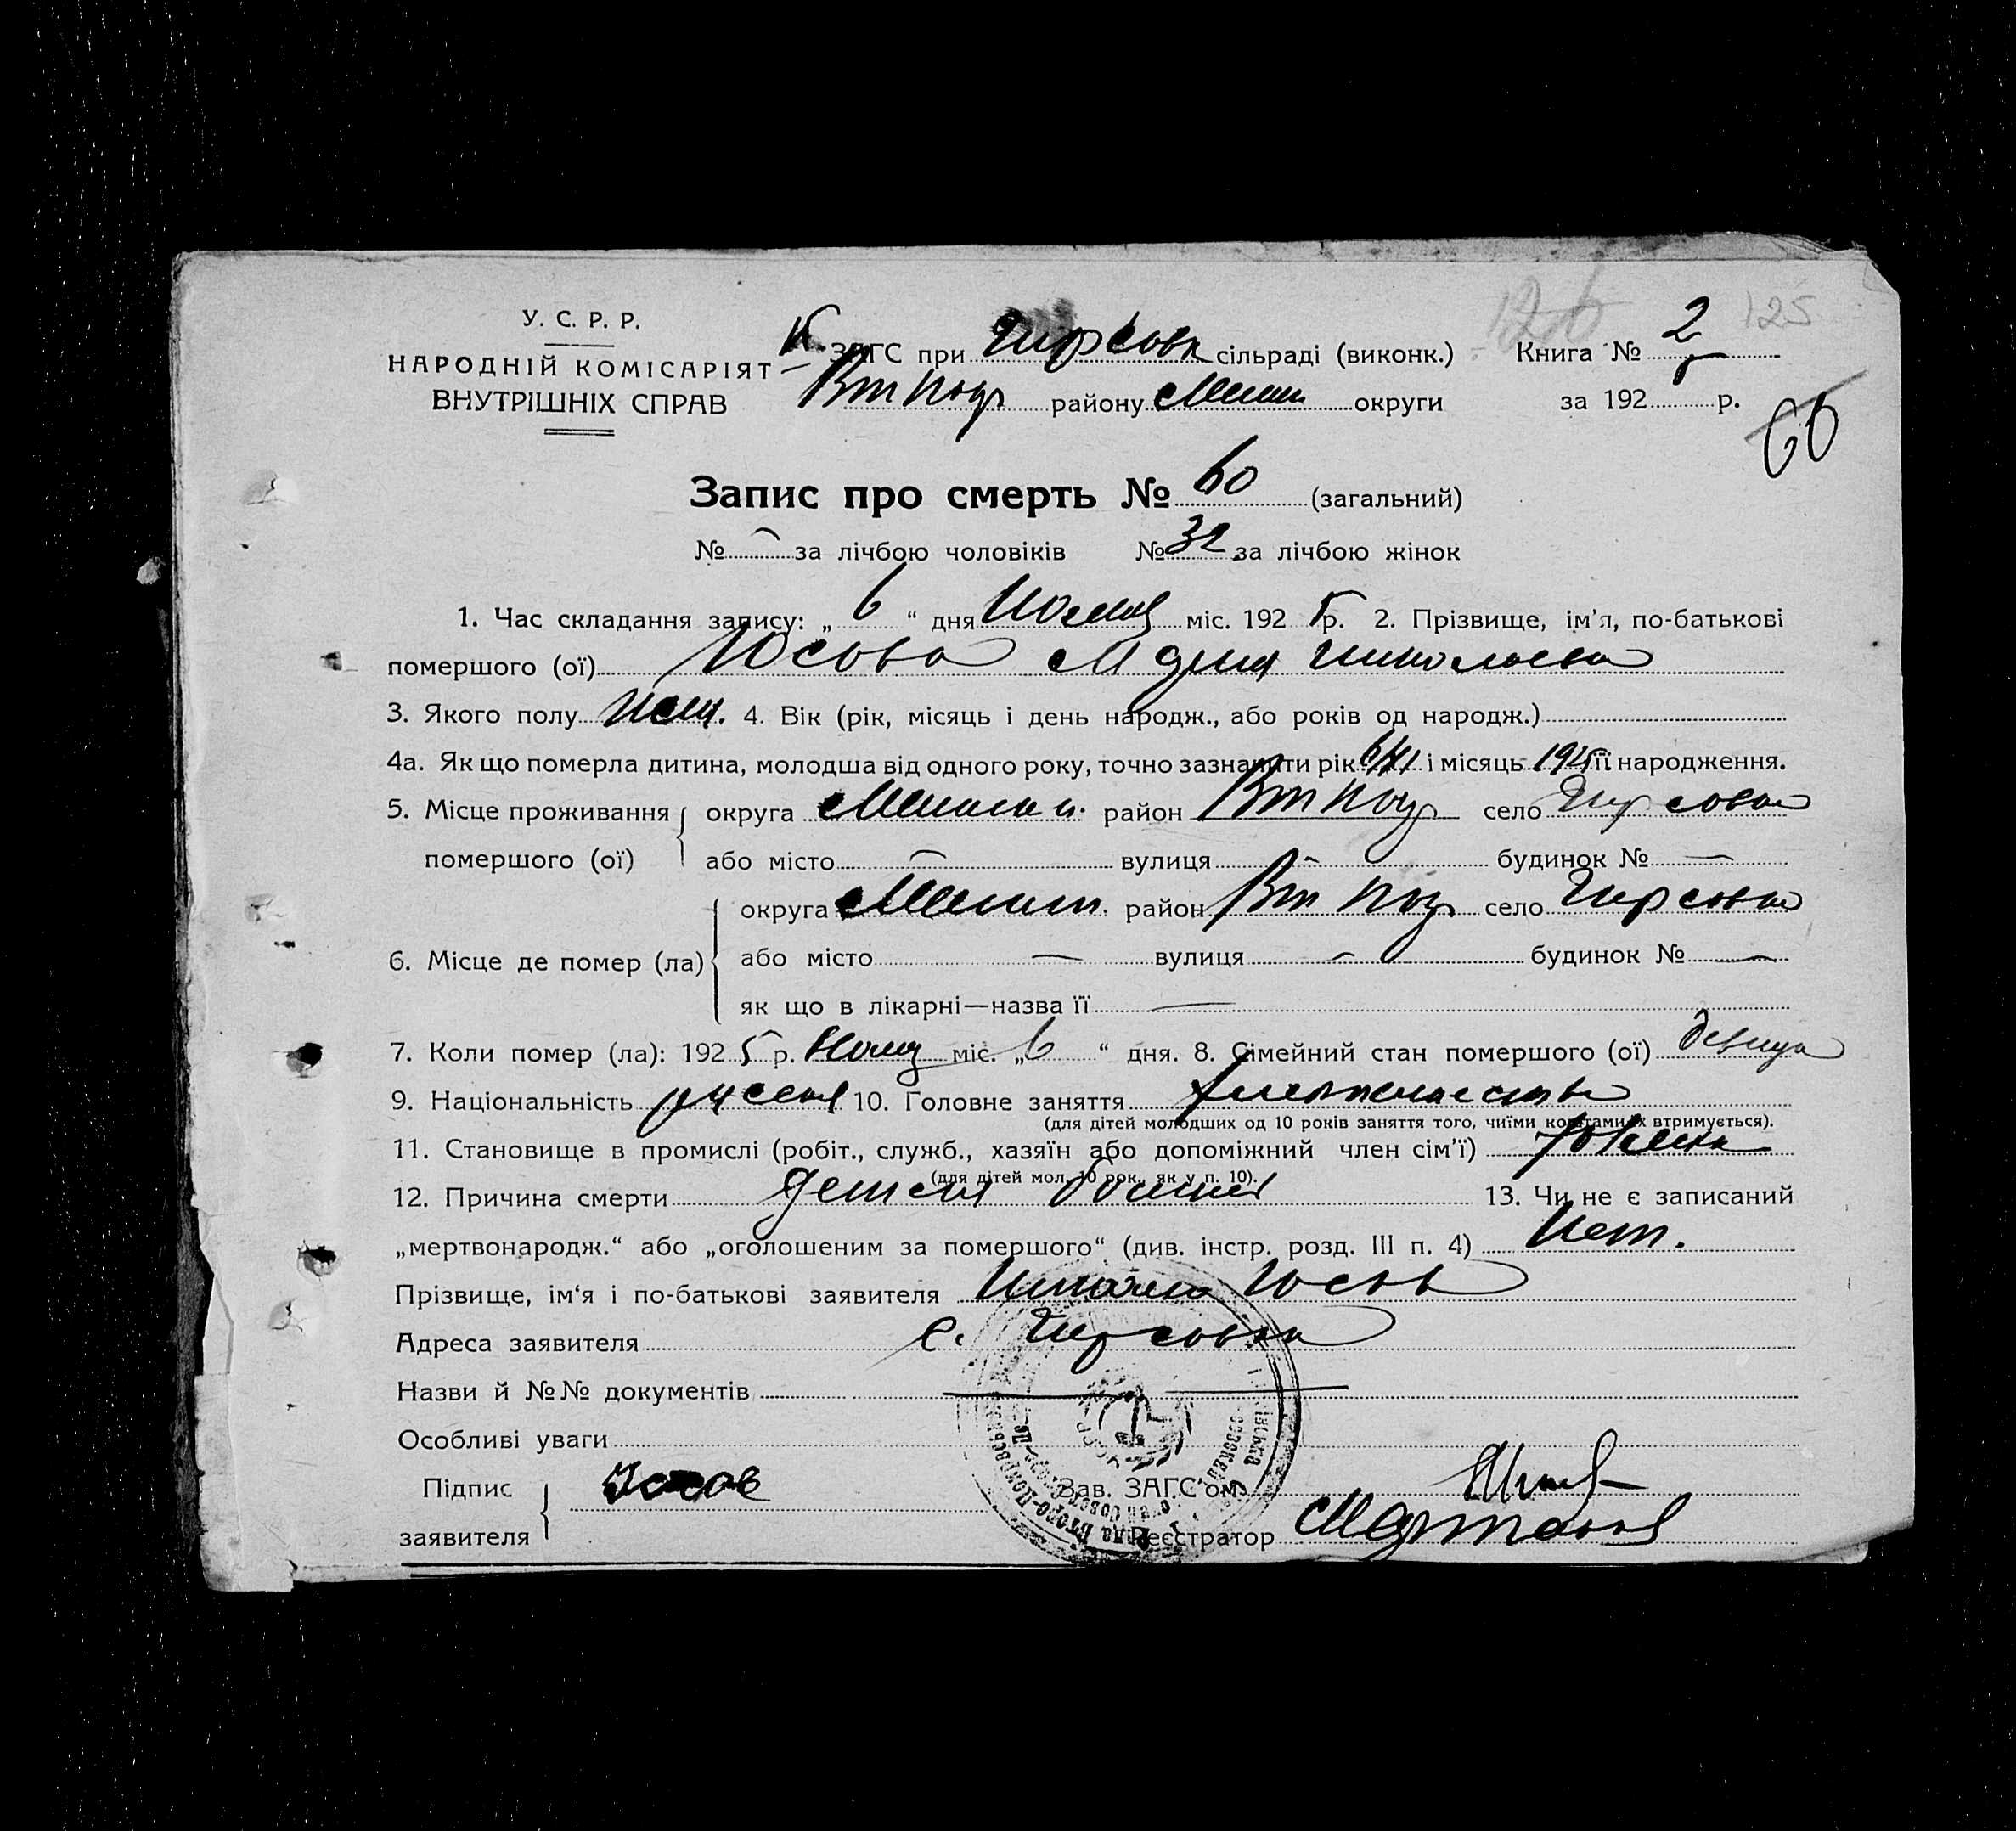 У. С. Р. Р.
НАРОДНІЙ КОМІСАРІЯТ
ВНУТРІШНІХ СПРАВ
ЗАГС при Гирсовк сільраді (виконк.)
Вт Покр району Мелит округи
Книга № 2
за 192 5 р.
126 125
60
Запис про смерть № 60 (загальний)
№ — за лічбою чоловіків № 32 за лічбою жінок
1. Час складання запису: „ 6 “ дня міс. 192 5 р. 2. Прізвище, ім'я, по-батькові
помершого (ої) Юсова Мария Николаевна
3. Якого полу жен. 4. Вік (рік, місяць і день народж., або років од народж.)
4а. Як що померла дитина, молодша від одного року, точно зазначити рік і місяць її народження.
5. Місце проживання помершого (ої) округа Мелитоп. район Вт Покр село Гирсовка
або місто — вулиця — будинок № —
6. Місце де помер (ла) округа Мелит. район Вт Покр село Гирсовка
або місто — вулиця — будинок № —
як що в лікарні—назва її —
7. Коли помер (ла): 192 5 р. міс. „ 6 “ дня. 8. Сімейний стан помершого (ої) девица
9. Національність русская 10. Головне заняття хлебопашество
(для дітей молодших од 10 років заняття того, чиїми коштами їх втримується).
11. Становище в промислі (робіт., служб., хазяїн або допоміжний член сім'ї)
(для дітей мол. 10 рок., як у п. 10).
12. Причина смерти детская болезнь 13. Чи не є записаний
„мертвонародж.“ або „оголошеним за помершого“ (див. інстр. розд. III п. 4) Нет.
Прізвище, ім'я і по-батькові заявителя Николай Юсов
Адреса заявителя с. Гирсовка
Назви й №№ документів —
Особливі уваги
Підпис заявителя Юсов
Зав. ЗАГС'ом
Реєстратор